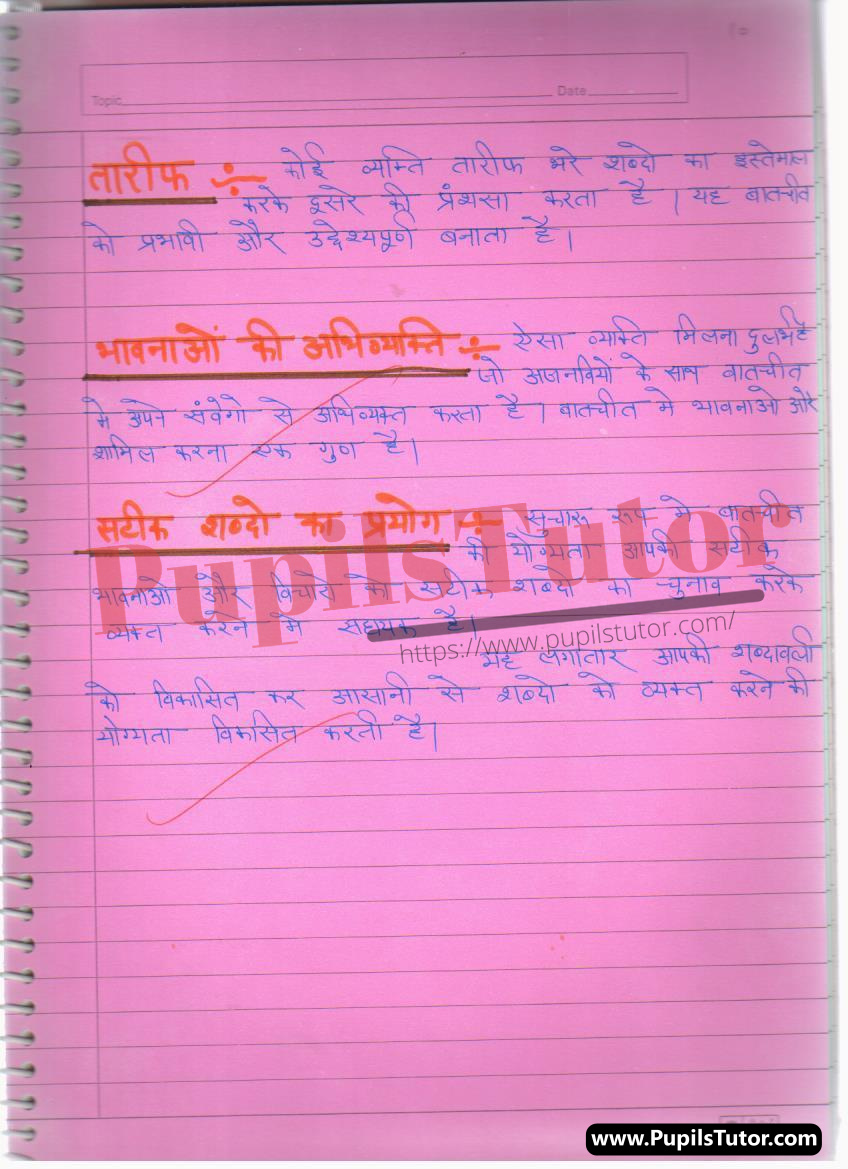 Topic Date
तारीफ ÷ कोई व्यक्ति तारीफ भरे शब्दो का इस्तेमाल
करके दूसरे की प्रंशसा करता है । यह बातचीत
को प्रभावी और उद्देश्यपूर्ण बनाता है।
भावनाओं की अभिव्यक्ति ÷ ऐसा व्यक्ति मिलना दुलर्भ है
जो अजनबियों के साथ बातचीत
मे अपने संवेगो से अभिव्यक्त करता है । बातचीत मे भावनाओ और
शामिल करना एक गुण है।
सटीक शब्दो का प्रयोग ÷ सुचारू रूप मे बातचीत
की योग्यता आपकी सटीक
भावनाओ और विचारो को सटीक शब्दो का चुनाव करके
व्यक्त करने मे सहायक है।
PupilsTutor
https://www.pupilstutor.com/
यह लगातार आपकी शब्दावली
को विकासित कर आसानी से शब्दो को व्यक्त करने की
योग्यता विकसित करती है।
www.PupilsTutor.com